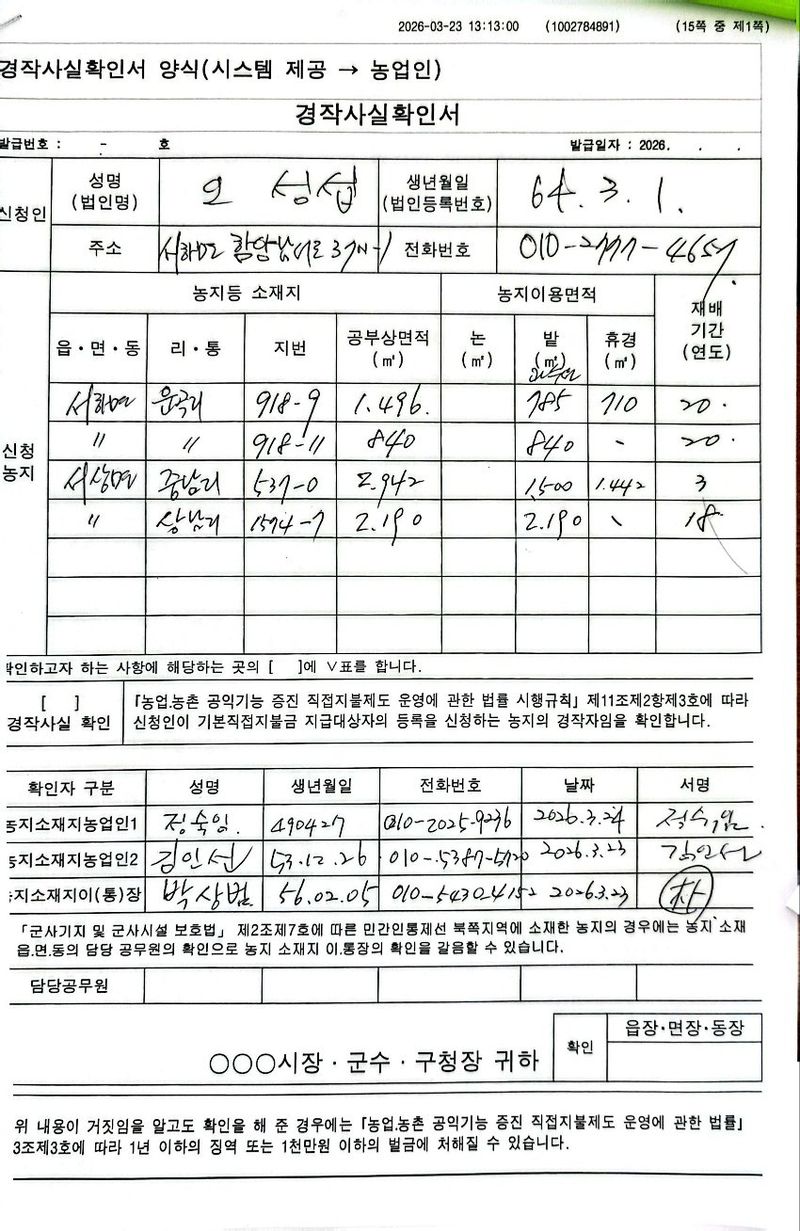 2026-03-23 13:13:00 (1002784891) (15쪽 중 제1쪽)
경작사실확인서 양식(시스템 제공 → 농업인)
경작사실확인서
발급번호 : - 호 발급일자 : 2026. . .
신청인 성명 (법인명) 오 성섭 생년월일 (법인등록번호) 64. 3. 1.
주소 서하면 함양남서로 전화번호 010-2777-4657
신청농지 농지등 소재지 농지이용면적 재배기간(연도)
읍·면·동 리·통 지번 공부상면적(㎡) 논(㎡) 밭(㎡) 휴경(㎡)
서하면 운곡리 918-9 1.496. 785 710 20.
〃 〃 918-11 840 840 - 20.
서상면 중남리 537-0 2.942 1,500 1.442 3
〃 상남리 1574-7 2.190 2.190 \ 18
확인하고자 하는 사항에 해당하는 곳의 [ ]에 ∨표를 합니다.
[ ] 경작사실 확인
「농업.농촌 공익기능 증진 직접지불제도 운영에 관한 법률 시행규칙」 제11조제2항제3호에 따라
신청인이 기본직접지불금 지급대상자의 등록을 신청하는 농지의 경작자임을 확인합니다.
확인자 구분 성명 생년월일 전화번호 날짜 서명
농지소재지농업인1 정숙임. 490427 010-2025-9236 2026.3.24 정숙임.
농지소재지농업인2 김인선 53.12.26 010-5387-5720 2026.3.23 김인선
농지소재지이(통)장 박상범 56.02.05 010-5430-4152 2026.3.23 朴
「군사기지 및 군사시설 보호법」 제2조제7호에 따른 민간인통제선 북쪽지역에 소재한 농지의 경우에는 농지 소재
읍.면.동의 담당 공무원의 확인으로 농지 소재지 이.통장의 확인을 갈음할 수 있습니다.
담당공무원
○○○시장·군수·구청장 귀하 확인 읍장·면장·동장
위 내용이 거짓임을 알고도 확인을 해 준 경우에는 「농업.농촌 공익기능 증진 직접지불제도 운영에 관한 법률」
3조제3호에 따라 1년 이하의 징역 또는 1천만원 이하의 벌금에 처해질 수 있습니다.